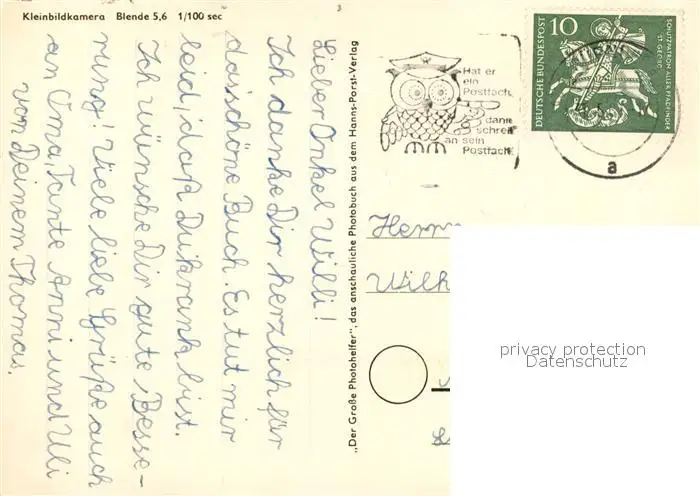 Kleinbildkamera Blende 5,6 1/100 sec
Lieber Onkel Willi!
Ich danke Dir herzlich für
das schöne Buch. Es tut mir
leid, daß Du krank bist.
Ich wünsche Dir gute Besse-
rung! Viele liebe Grüße auch
an Oma, Tante Anni und Uli
von Deinem Thomas.
„Der Große Photohelfer", das anschauliche Photobuch aus dem Hanns-Porst-Verlag
Hat er
ein
Postfach,
dann
schreib
an sein
Postfach
10
DEUTSCHE BUNDESPOST
ST. GEORG
SCHUTZPATRON ALLER PFADFINDER
a
Herrn
Wilh
privacy protection
Datenschutz